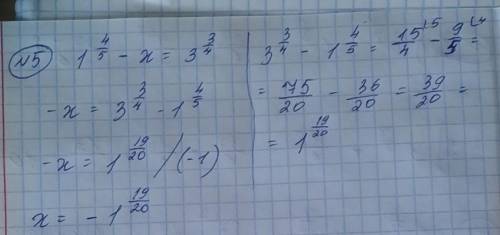 №5 1 4/5 - x = 3 3/4
-x = 3 3/4 - 1 4/5
-x = 1 19/20 /(-1)
x = - 1 19/20
3 3/4 - 1 4/5 = 15/4 \5 - 9/5 \4 =
= 75/20 - 36/20 = 39/20 =
= 1 19/20